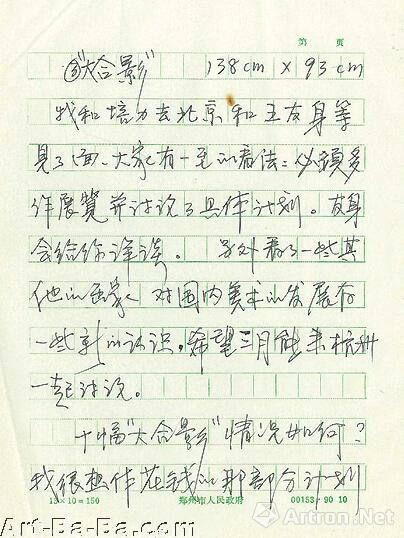 第　页
③"大合影"　138cm × 93cm
我和培力去北京和王友身等
见了面、大家有一致的看法：必须多
作展览并讨论了具体计划。友身
会给你详谈。　另外看了一些其
他的画家　对国内美术的发展有
一些新的认识。希望三月能来杭州
一起讨论。
十幅"大合影"情况如何？
我很想作花钱的那部分计划
15×10=150　郑州市人民政府　00153·90 10
Art-Ba-Ba.com
雅昌艺术网
Artron.Net